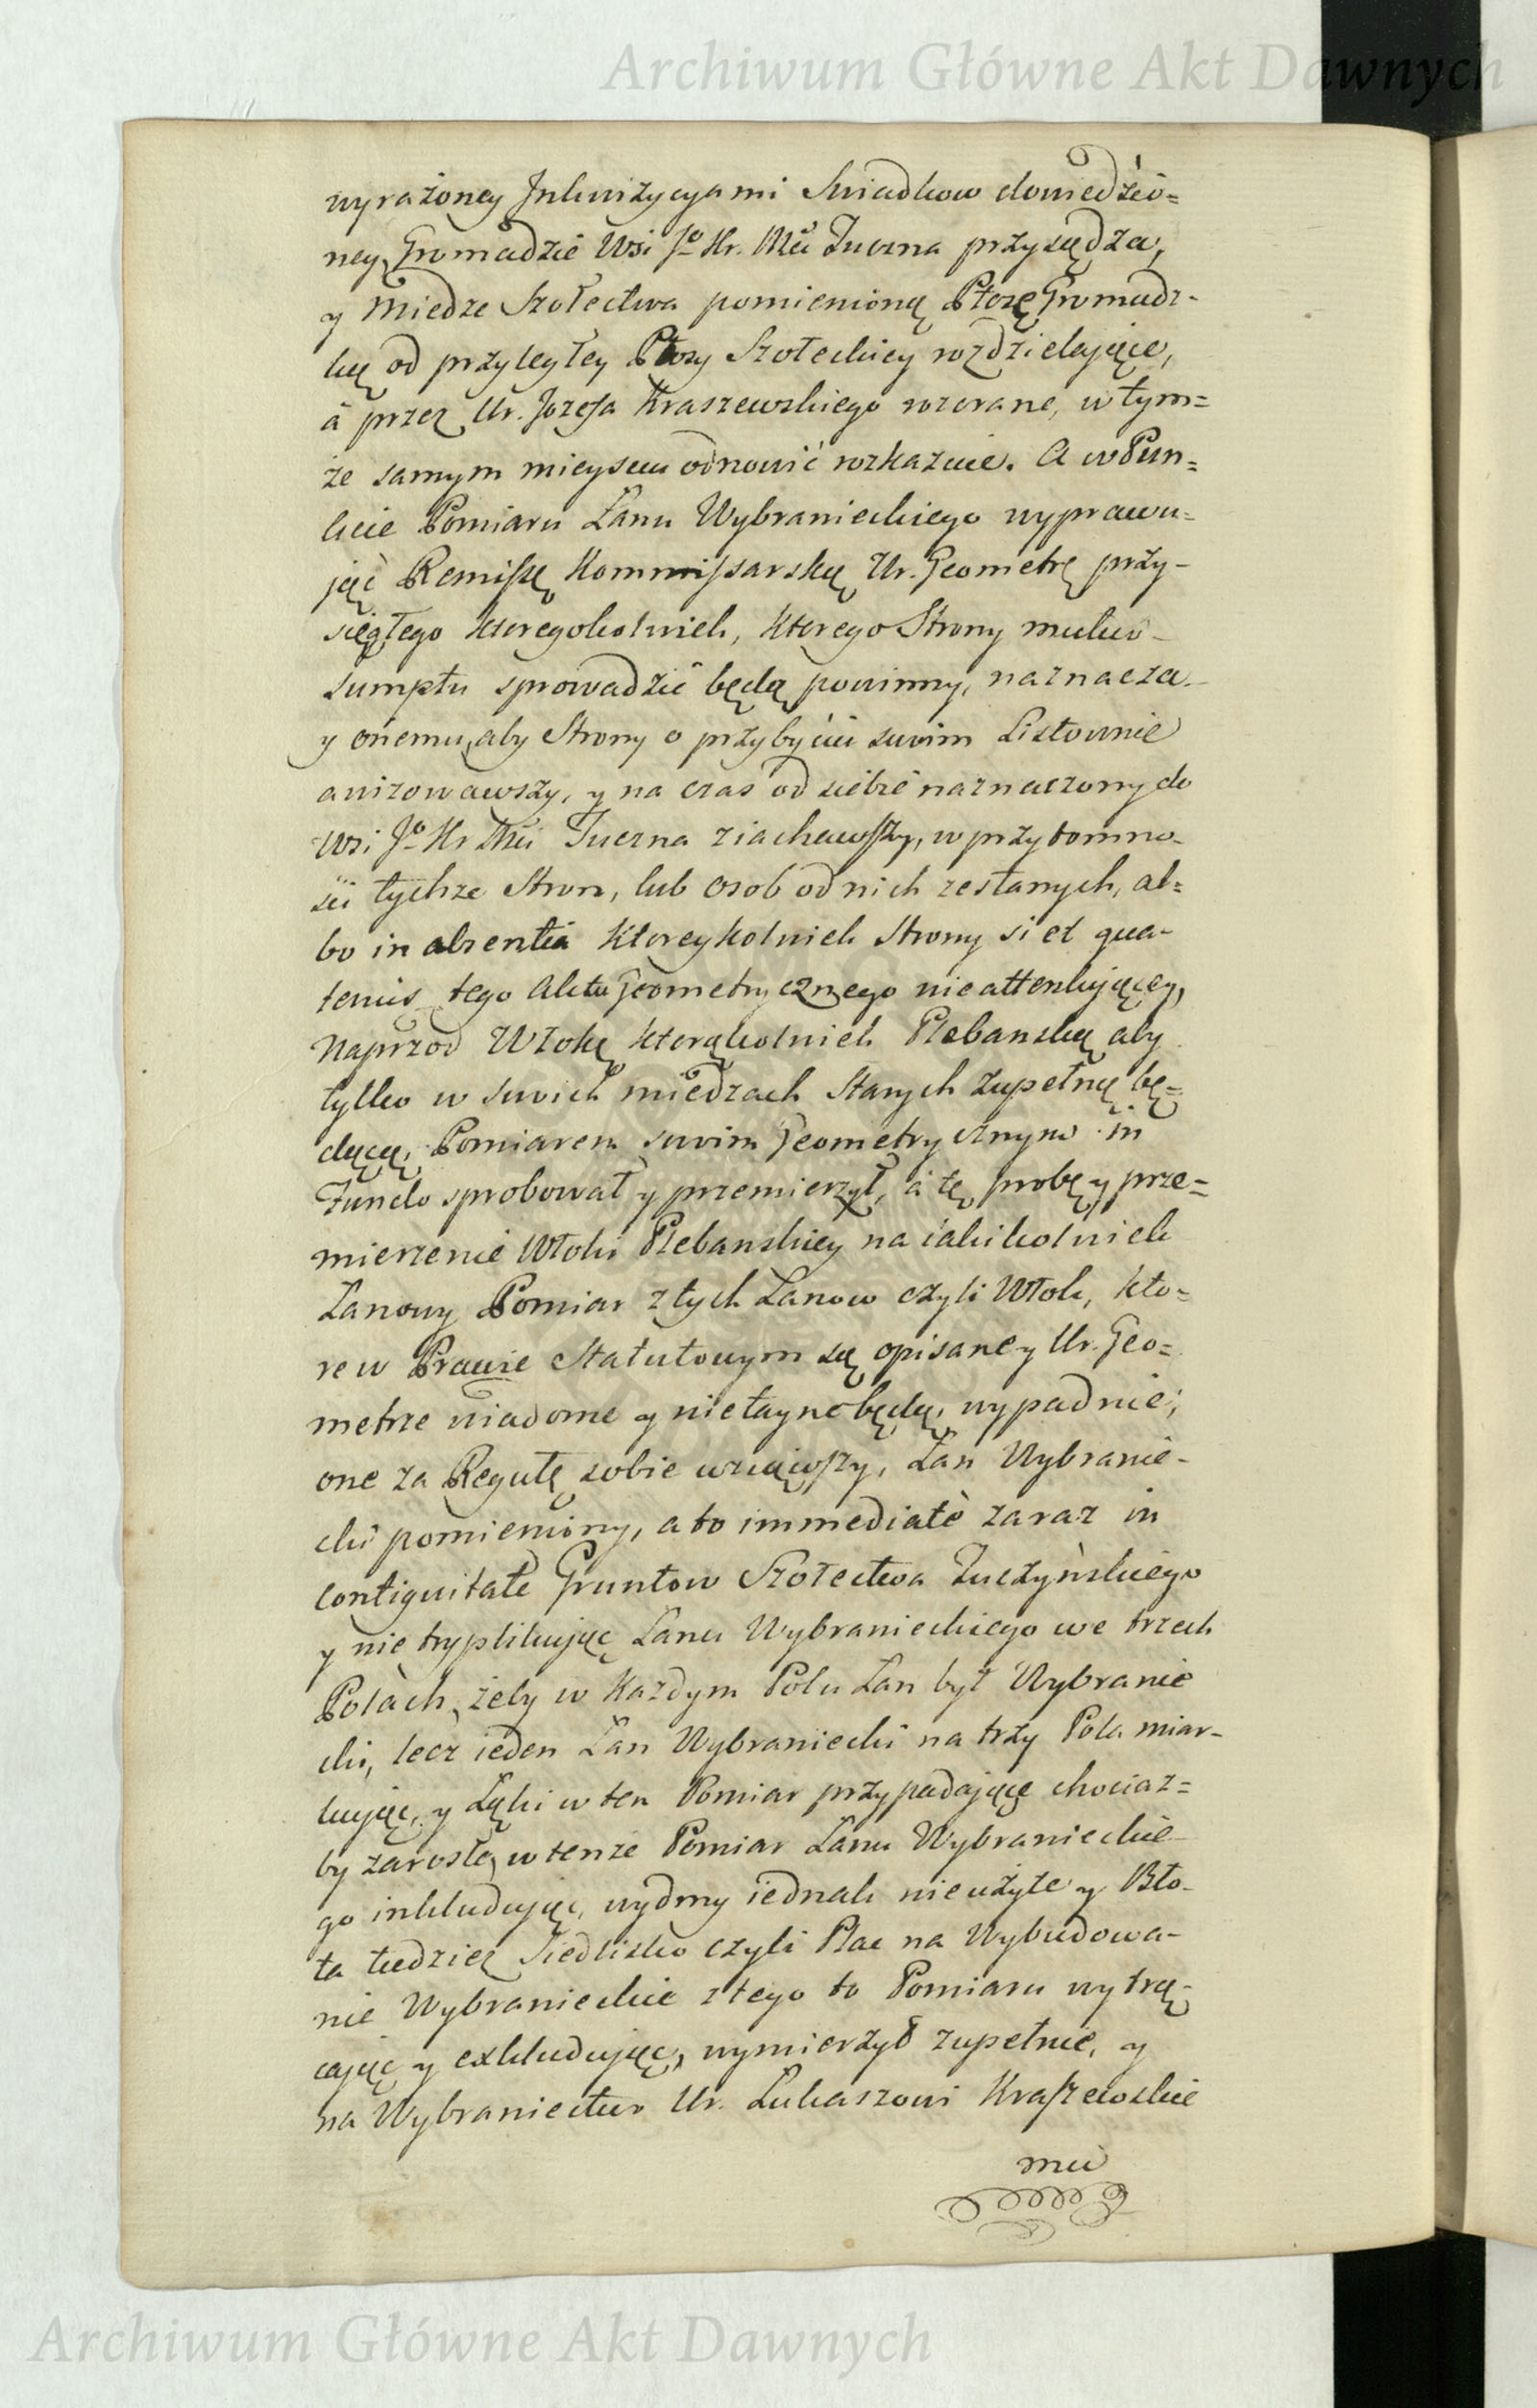 Archiwum Główne Akt Dawnych
wyrażoney Inkwizycyami Swiadkow dowiedzio=
ney, Gromadzie Wsi Jo Kr. Mci Tuczna przysądza,
y Miedze Szołectwa pomienioną Płozę Gromadz-
ką od przyległey Płozy Szołeckiey rozdzielające,
á przez Ur. Jozefa Kraszewskiego rozorane, w tym=
że samym mieyscu odnowić rozkazuie. A w Pun=
kcie Pomiaru Łanu Wybranieckiego wyprawu=
jąć Remissę Kommissarską, Ur. Geometrę przy-
sięgłego ktoregokolwiek, ktorego Strony mutuo
sumptu sprowadzić będą powinny, naznacza
y onemu, aby Strony o przybyciu swoim Listownie
awizowawszy, y na czas od siebie naznaczony do
Wsi Jo Kr Mci Tuczna ziachawszy, w przytomno-
ści tychże Stron, lub osob od nich zesłanych, al=
bo in absentia ktoreykolwiek Strony si et qua-
tenus tego Aktu Geometrycznego nieattentującey,
Naprzod Włokę ktorąkolwiek Plebanską aby
tylko w swoich miedzach Starych zupełną bę=
dącą, Pomiarem swoim Geometrycznym in
Fundo sprobował y przemierzył, á tę probę y prze=
mierzenie Włoki Plebanskiey na iakikolwiek
Łanowy Pomiar z tych Łanow czyli Włok, kto=
re w Prawie Statutowym są opisane y Ur. Geo=
metrze wiadome y nietayne będą, wypadnie;
one za Regułę sobie wziąwszy, Łan Wybranie-
cki pomieniony, a to immediatè zaraz in
contiguitate Gruntow Szołectwa Tuczyńskiego
y nie tryplikując Łanu Wybranieckiego we trzech
Polàch, żeby w każdym Polu Łan był Wybranie
cki, lecz ieden Łan Wybraniecki na trzy Pola miar-
kując, y Łąki w ten Pomiar przypadające chociaż=
by zarosłe, w tenże Pomiar Łanu Wybranieckie
go inkludując, wydmy iednak nieużyte y Bło-
ta tudzież Siedlisko czyli Plac na Wybudowa-
nie Wybranieckie z tego to Pomiaru wytrą-
cając y exkludując, wymierzył zupełnie, y
na Wybraniectwo Ur. Łukaszowi Kraszewskie
mu
Archiwum Główne Akt Dawnych